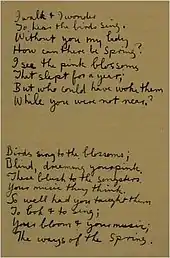 I walk & I wonder
To hear the birds sing.
Without you my lady
How can there be Spring?
I see the pink blossoms
That slept for a year;
But who could have woke them
While you were not near?
Birds sing to the blossoms;
Blind, dreaming your pink,
These blush to the songsters.
Your music they think.
So well had you taught them
To look & to sing;
Your bloom & your music;
The ways of the Spring.